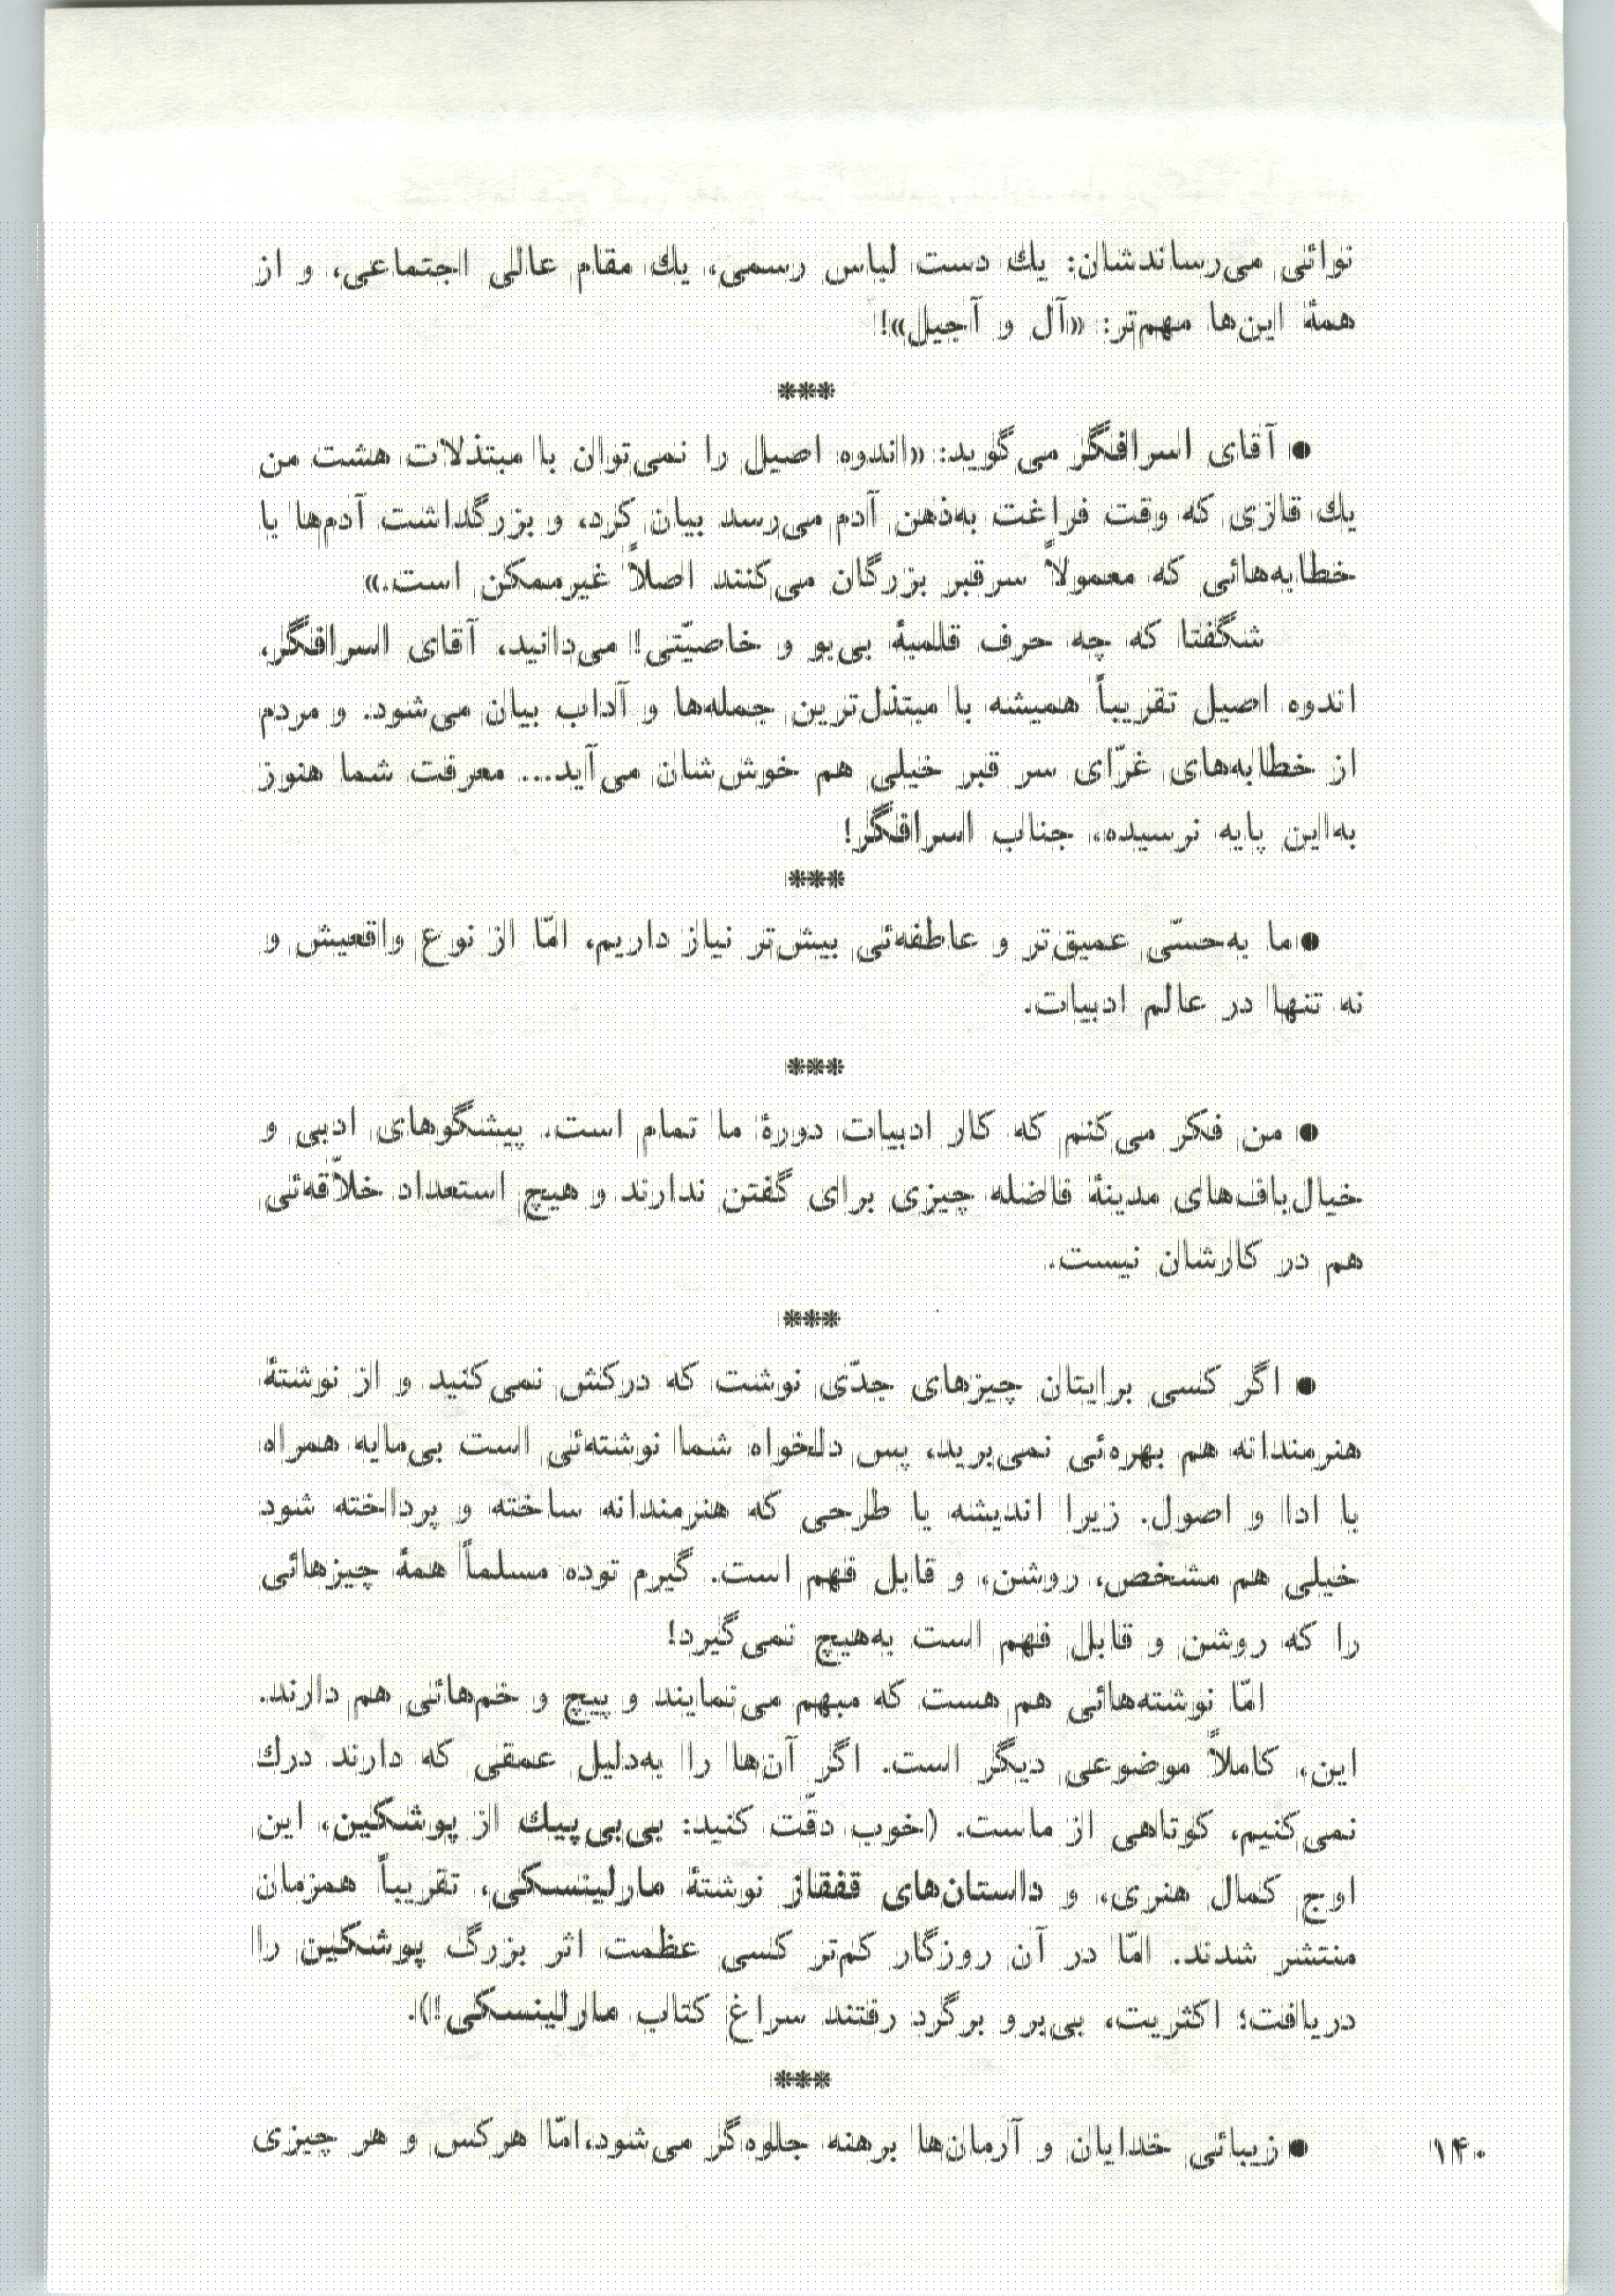 نوائی می‌رساندشان: یك دست لباس رسمی، یك مقام عالی اجتماعی، و از
همهٔ این‌ها مهم‌تر: «آل و آجیل»!
***
● آقای اسرافگر می‌گوید: «اندوه اصیل را نمی‌توان با مبتذلات هشت من
یك قازی که وقت فراغت به‌ذهن آدم می‌رسد بیان کرد، و بزرگداشت آدم‌ها با
خطابه‌هائی که معمولاً سرقبر بزرگان می‌کنند اصلاً غیرممکن است.»
شگفتا که چه حرف قلمبهٔ بی‌بو و خاصیّتی! می‌دانید، آقای اسرافگر،
اندوه اصیل تقریباً همیشه با مبتذل‌ترین جمله‌ها و آداب بیان می‌شود. و مردم
از خطابه‌های غرّای سر قبر خیلی هم خوش‌شان می‌آید... معرفت شما هنوز
به‌این پایه نرسیده، جناب اسرافگر!
***
● ما به‌حسّی عمیق‌تر و عاطفه‌ئی بیش‌تر نیاز داریم، امّا از نوع واقعیش و
نه تنها در عالم ادبیات.
***
● من فکر می‌کنم که کار ادبیات دورهٔ ما تمام است. پیشگوهای ادبی و
خیال‌باف‌های مدینهٔ فاضله چیزی برای گفتن ندارند و هیچ استعداد خلاّقه‌ئی
هم در کارشان نیست.
***
● اگر کسی برایتان چیزهای جدّی نوشت که درکش نمی‌کنید و از نوشتهٔ
هنرمندانه هم بهره‌ئی نمی‌برید، پس دلخواه شما نوشته‌ئی است بی‌مایه همراه
با ادا و اصول. زیرا اندیشه یا طرحی که هنرمندانه ساخته و پرداخته شود
خیلی هم مشخص، روشن، و قابل فهم است. گیرم توده مسلماً همهٔ چیزهائی
را که روشن و قابل فهم است به‌هیچ نمی‌گیرد!
امّا نوشته‌هائی هم هست که مبهم می‌نمایند و پیچ و خم‌هائی هم دارند.
این، کاملاً موضوعی دیگر است. اگر آن‌ها را به‌دلیل عمقی که دارند درك
نمی‌کنیم، کوتاهی از ماست. (خوب دقّت کنید: بی‌بی‌پیك از پوشکین، این
اوج کمال هنری، و داستان‌های قفقاز نوشتهٔ مارلینسکی، تقریباً همزمان
منتشر شدند. امّا در آن روزگار کم‌تر کسی عظمت اثر بزرگ پوشکین را
دریافت؛ اکثریت، بی‌برو برگرد رفتند سراغ کتاب مارلینسکی!).
***
● زیبائی خدایان و آرمان‌ها برهنه جلوه‌گر می‌شود، امّا هرکس و هر چیزی
۱۴۰